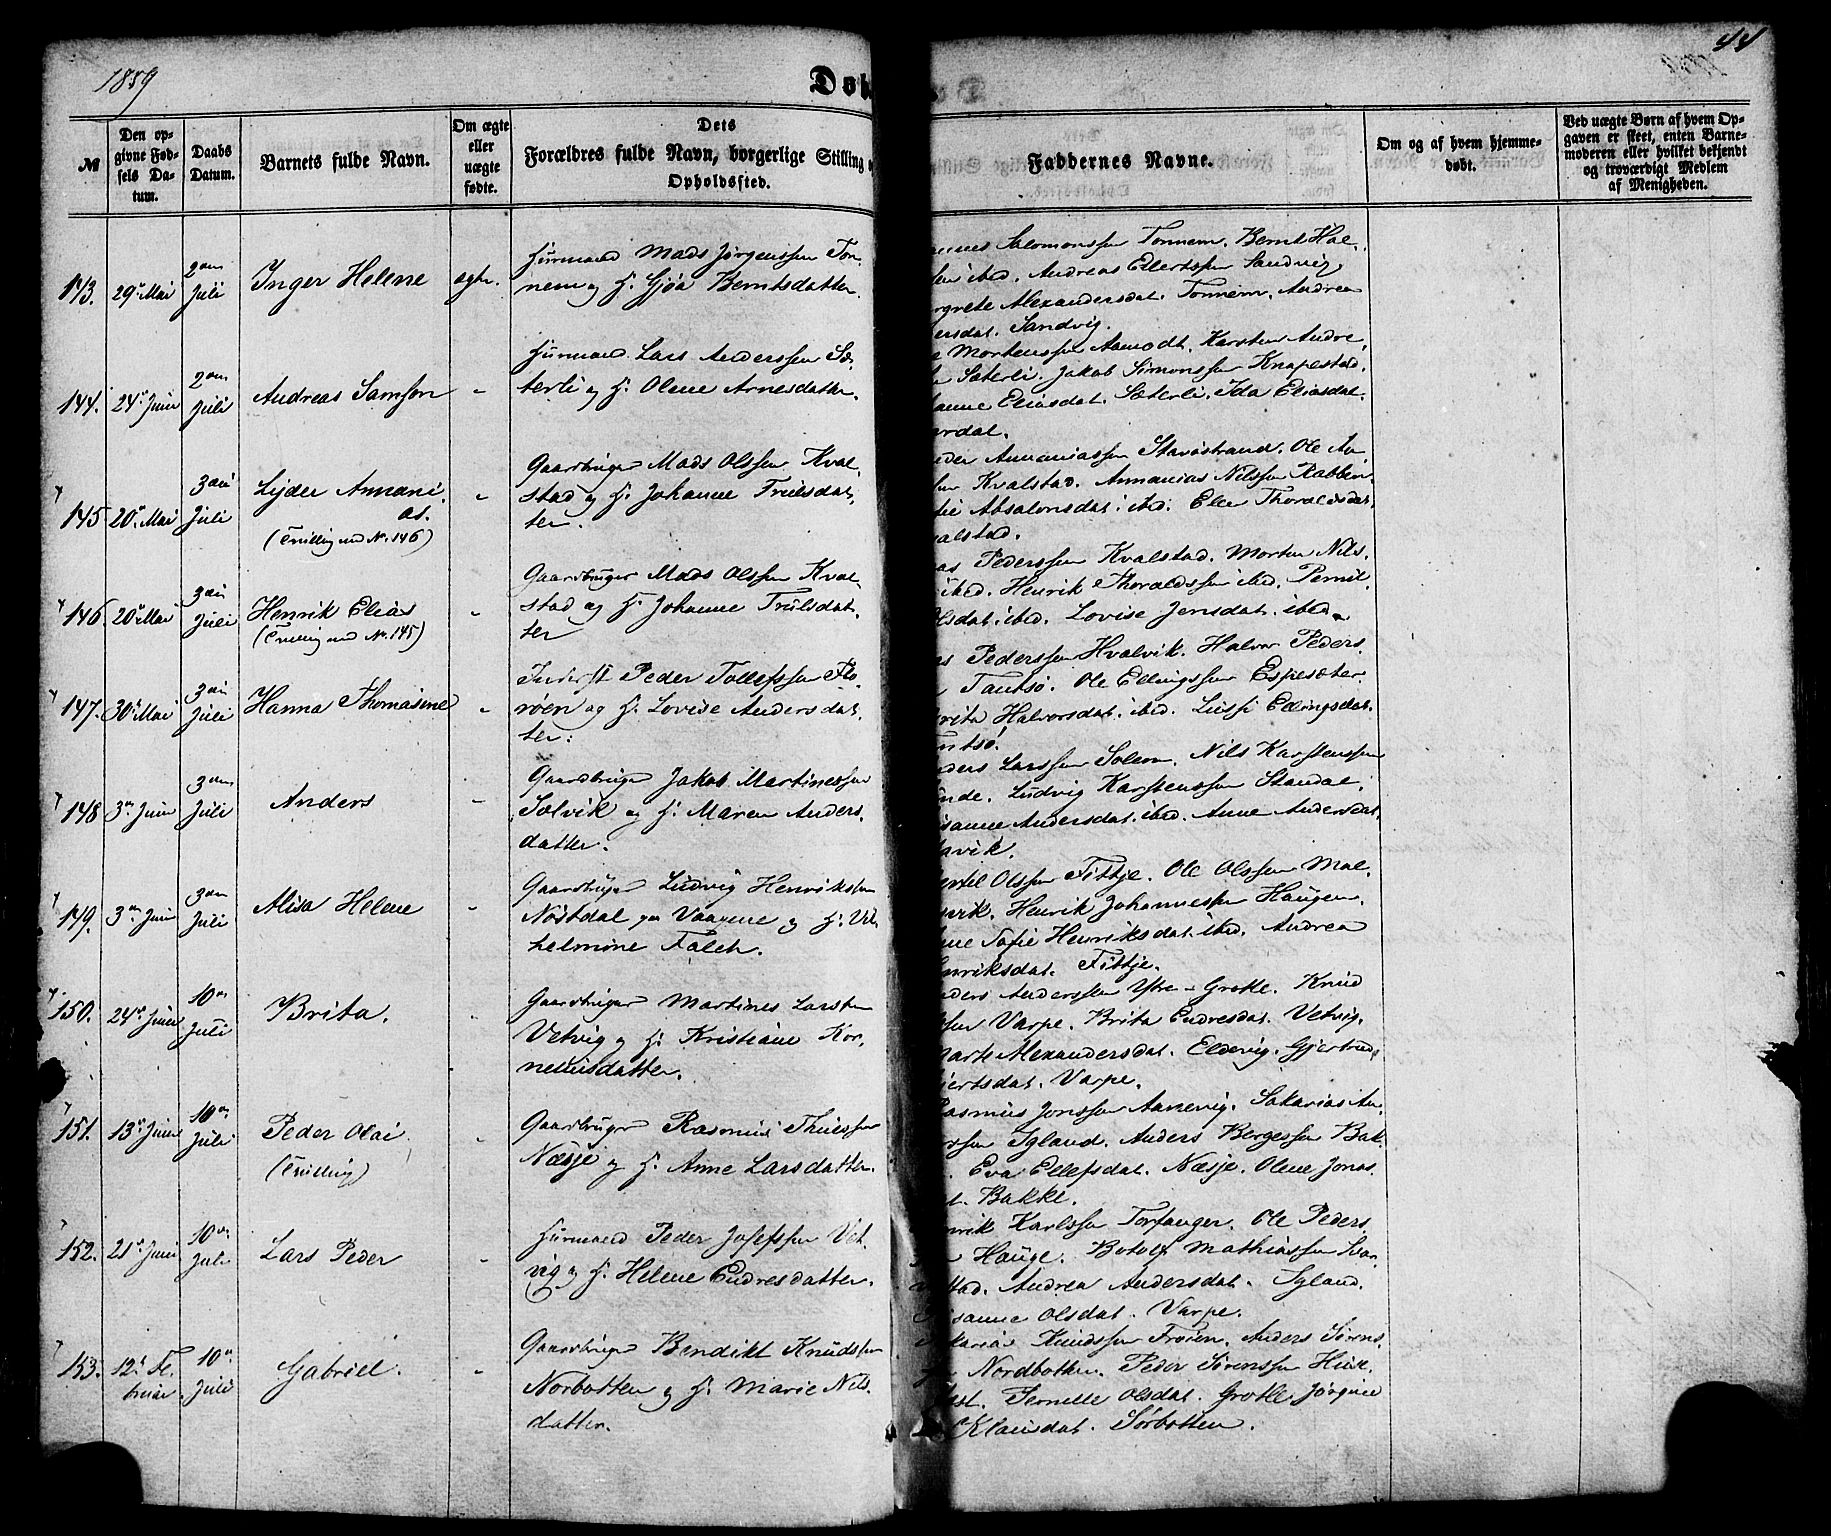 1859
44
Døb
№
Den op-
givne Fød-
sels Da-
tum.
Daabs
Datum.
Barnets fulde Navn.
Om ægte
eller
uægte
fødte.
Dets
Forældres fulde Navn, borgerlige Stilling o
Opholdssted.
Faddernes Navne.
Om og af hvem hjemme-
døbt.
Ved uægte Børn af hvem Op-
gaven er skeet, enten Barne-
moderen eller hvilket bekjendt
og troværdigt Medlem
af Menigheden.
143. 29de Mai 2den Juli Inger Helene ægte.
Huusmand Mads Jørgenssen Ton-
nem og H. Gjøa Berntsdatter
Salomonssen Tonnem. Bernt Hal-
ibid. Andreas Ellertssen Sandvig
Alexandersdat. Tonnem. Andrea
Sandvig.
144. 24de Juni 2den Juli Andreas Samson -
Huusmand Lars Anderssen Sæ-
terli og H. Olene Arnesdatter.
Mortenssen Aamodt. Karsten Andre-
Sæterli. Jakob Simonssen Knapestad.
Eliasdat. Sæterli. Ida Eliasdat.
145 20de Mai 3die Juli Lyder Annani-
as.
(Tvilling med No. 146)
-
Gaardbruger Mads Olssen Kval-
stad og H. Johanne Trulsdat-
ter.
Annaniassen Stavøstrand. Ole An-
Kvalstad. Annanias Nilssen Rabben
Absalonsdat. ibid. Elle Thoraldsdat.
146. 20de Mai 3die Juli Henrik Elias
(Tvilling med No. 145)
-
Gaardbruger Mads Olssen Kval-
stad og H. Johanne Trulsdat-
ter
Pederssen Kvalstad. Morten Nils-
ibid. Henrik Thoraldssen ibid. Pernil-
ibid. Lovise Jensdat. ibid.
147. 30te Mai 3die Juli Hanna Thomasine -
Inderst Peder Tollefssen Flo-
røen og H. Lovise Andersdat-
ter.
Pederssen Hvalvik. Halvor Peders-
Tautsø. Ole Ellingssen Espesæter.
Halvorsdat. ibid. Lussi Ellingsdat.
148 3die Juni 3die Juli Anders -
Gaardbruger Jakob Martinessen
Solvik og H. Maren Anders-
datter.
Larssen Solem. Nils Karstenssen
Ludvig Karstenssen Standal.
Andersdat. ibid. Anne Andersdat.
149. 3die Juni 3die Juli Alisa Helene -
Gaardbruger Ludvig Henrikssen
Nøstdal paa Vaagene og H. Vil-
helmine Falch.
Olssen Fittje. Ole Olssen Mal-
Henrik Johannessen Haugen.
Sofie Henriksdat. ibid. Andrea
Fittje.
150. 24de Juni 10de Juli Brita.
Gaardbruger Martines Larssen
Vetvig og H. Kristiane Kor-
neliusdatter.
Anderssen Ytre-Grotle. Knud
Varpe. Brita Endresdat. Vetvig.
Alexandersdat. Eldevig. Gjertrud
Varpe.
151. 13de Juni 10de Juli Peder Olai.
(Tvilling)
Gaardbruger Rasmus Thuessen
Næsje og H. Anne Larsdatter.
Jonssen Aanevig. Sakarias An-
Igland. Anders Bergessen Bak-
Eva Ellefsdat. Næsje. Olene Jonas-
Bakke.
152. 21de Juni 10de Juli Lars Peder -
Huusmand Peder Josefssen Vet-
vig og H. Helene Endresdatter.
Karlssen Torfanger. Ole Peders-
Hauge. Botolf Mathiassen Svar-
Andrea Andersdat. Igland.
Olsdat. Varpe.
153. 12te Fe-
bruar 10de Juli Gabriel. -
Gaardbruger Bendikt Knudssen
Norbotten og H. Marie Nils-
datter.
Knudssen Frøien. Anders Sørens-
Nordbotten. Peder Sørenssen Huse-
Pernelle Olsdat. Grotle. Jørgine
Klausdat. Sørbotten.